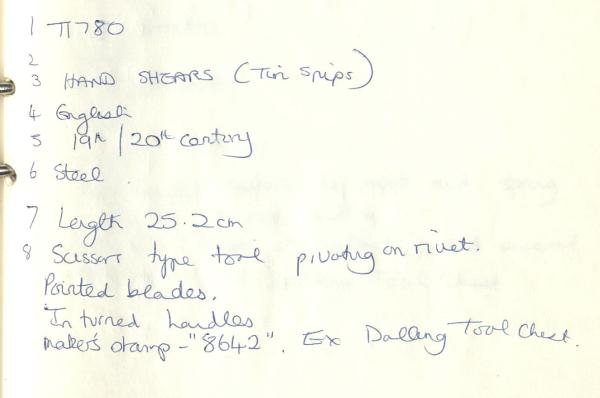 1 TI780
2
3 HAND SHEARS (Tin snips)
4 English
5 19th / 20th century
6 Steel
7 Length 25.2cm
8 Scissors type tool pivoting on rivet.
Pointed blades.
In turned handles
maker's stamp - "8642". Ex Dalling Tool Chest.